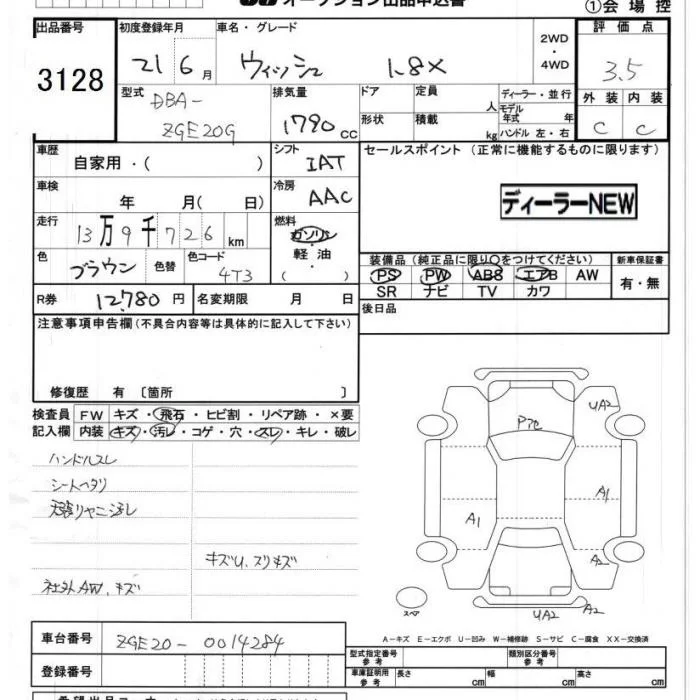 オークション出品申込書
①会場控
出品番号 初度登録年月 車名・グレード 2WD ・ 4WD 評価点
3128 21 6月 ウィッシュ 1.8X 3.5
型式 DBA- ZGE20G 排気量 1790 cc
ドア 定員 人 ディーラー・並行
モデル年式 年
形状 積載 kg ハンドル 左・右
外装 内装
C C
車歴 自家用・( )
シフト IAT
セールスポイント (正常に機能するものに限ります)
車検 年 月( 日)
冷房 AAC
ディーラーNEW
走行 13万9千726 km
燃料 ガソリン・軽油・( )
色 ブラウン 色替 色コード 4T3
装備品(純正品に限り○をつけてください) 新車保証書
PS PW ABS エアB AW 有・無
SR ナビ TV カワ
R券 12,780 円 名変期限 月 日
後日品
注意事項申告欄(不具合内容等は具体的に記入して下さい)
修復歴 有 〔箇所 〕
検査員 FW キズ・飛石・ヒビ割・リペア跡・×要
記入欄 内装 キズ・汚レ・コゲ・穴・スレ・キレ・破レ
ハンドルスレ
シートヘタリ
天張りヤニ汚レ
キズU、スリキズ
社外AW、キズ
P飛
UA2
A1
A1
A2
UA2 A2
スペア
A-キズ E-エクボ U-凹み W-補修跡 S-サビ C-腐食 XX-交換済
車台番号 ZGE20-0014284
型式指定番号 参考 類別区分番号 参考
登録番号
車庫証明用 参考 長さ cm 幅 cm 高さ cm